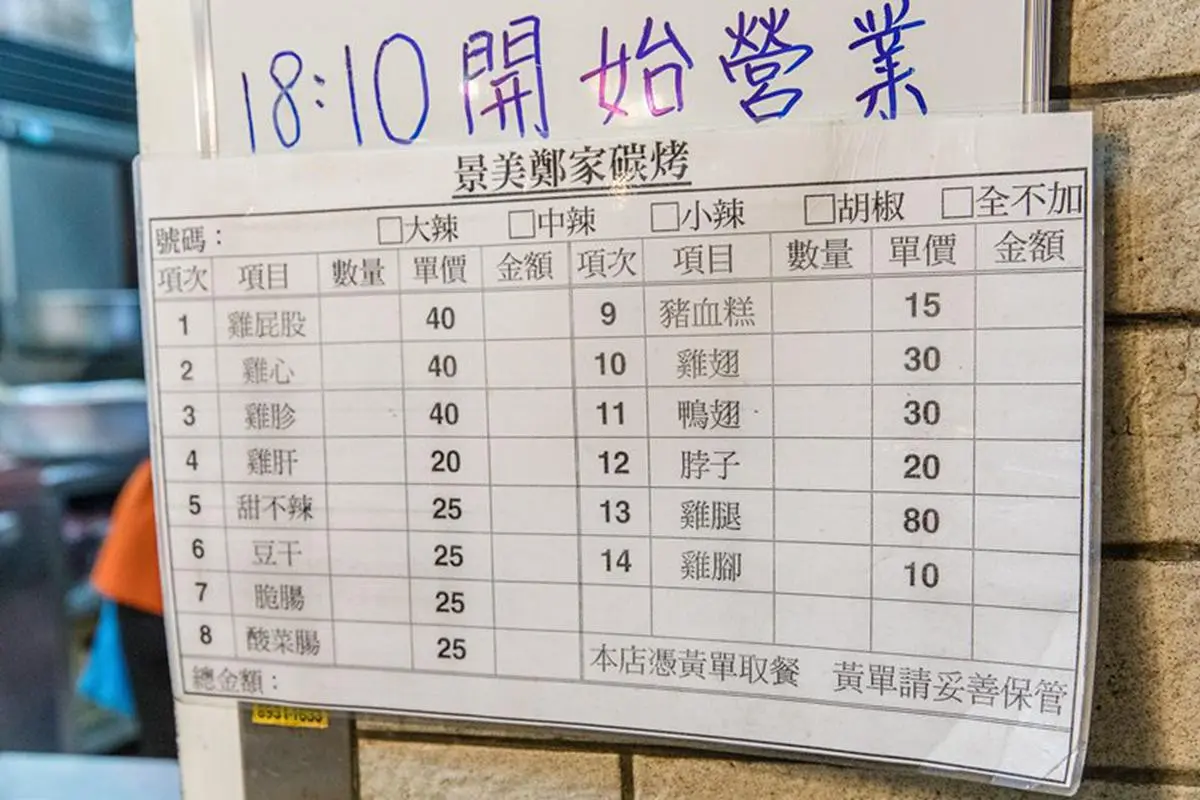 18:10 開始營業
景美鄭家碳烤
號碼： □大辣 □中辣 □小辣 □胡椒 □全不加
項次 項目 數量 單價 金額 項次 項目 數量 單價 金額
1 雞屁股 40 9 豬血糕 15
2 雞心 40 10 雞翅 30
3 雞胗 40 11 鴨翅 30
4 雞肝 20 12 脖子 20
5 甜不辣 25 13 雞腿 80
6 豆干 25 14 雞腳 10
7 脆腸 25
8 酸菜腸 25 本店憑黃單取餐 黃單請妥善保管
總金額：
8931-1633